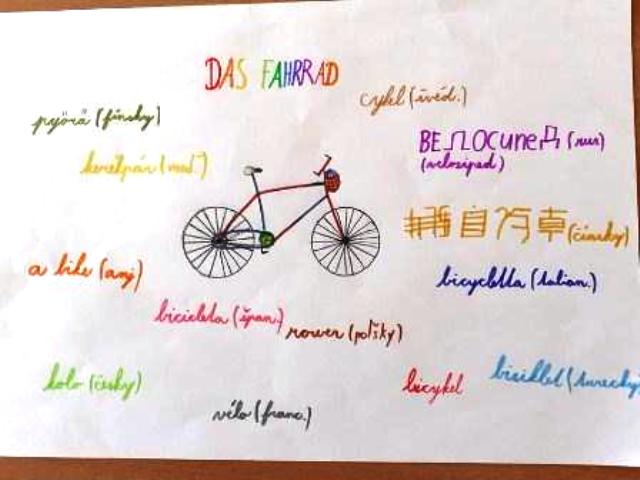 DAS FAHRRAD
cykel (švéd.)
pyörä (fínsky)
ВЕЛОСипеД (rus)
(velosiped)
kerékpár (maď.)
自行車 (čínsky)
a bike (ang)
bicycletta (talian.)
bicicleta (špan.)
rower (poľsky)
bisiklet (turecky)
kolo (česky)
bicykel
vélo (franc.)